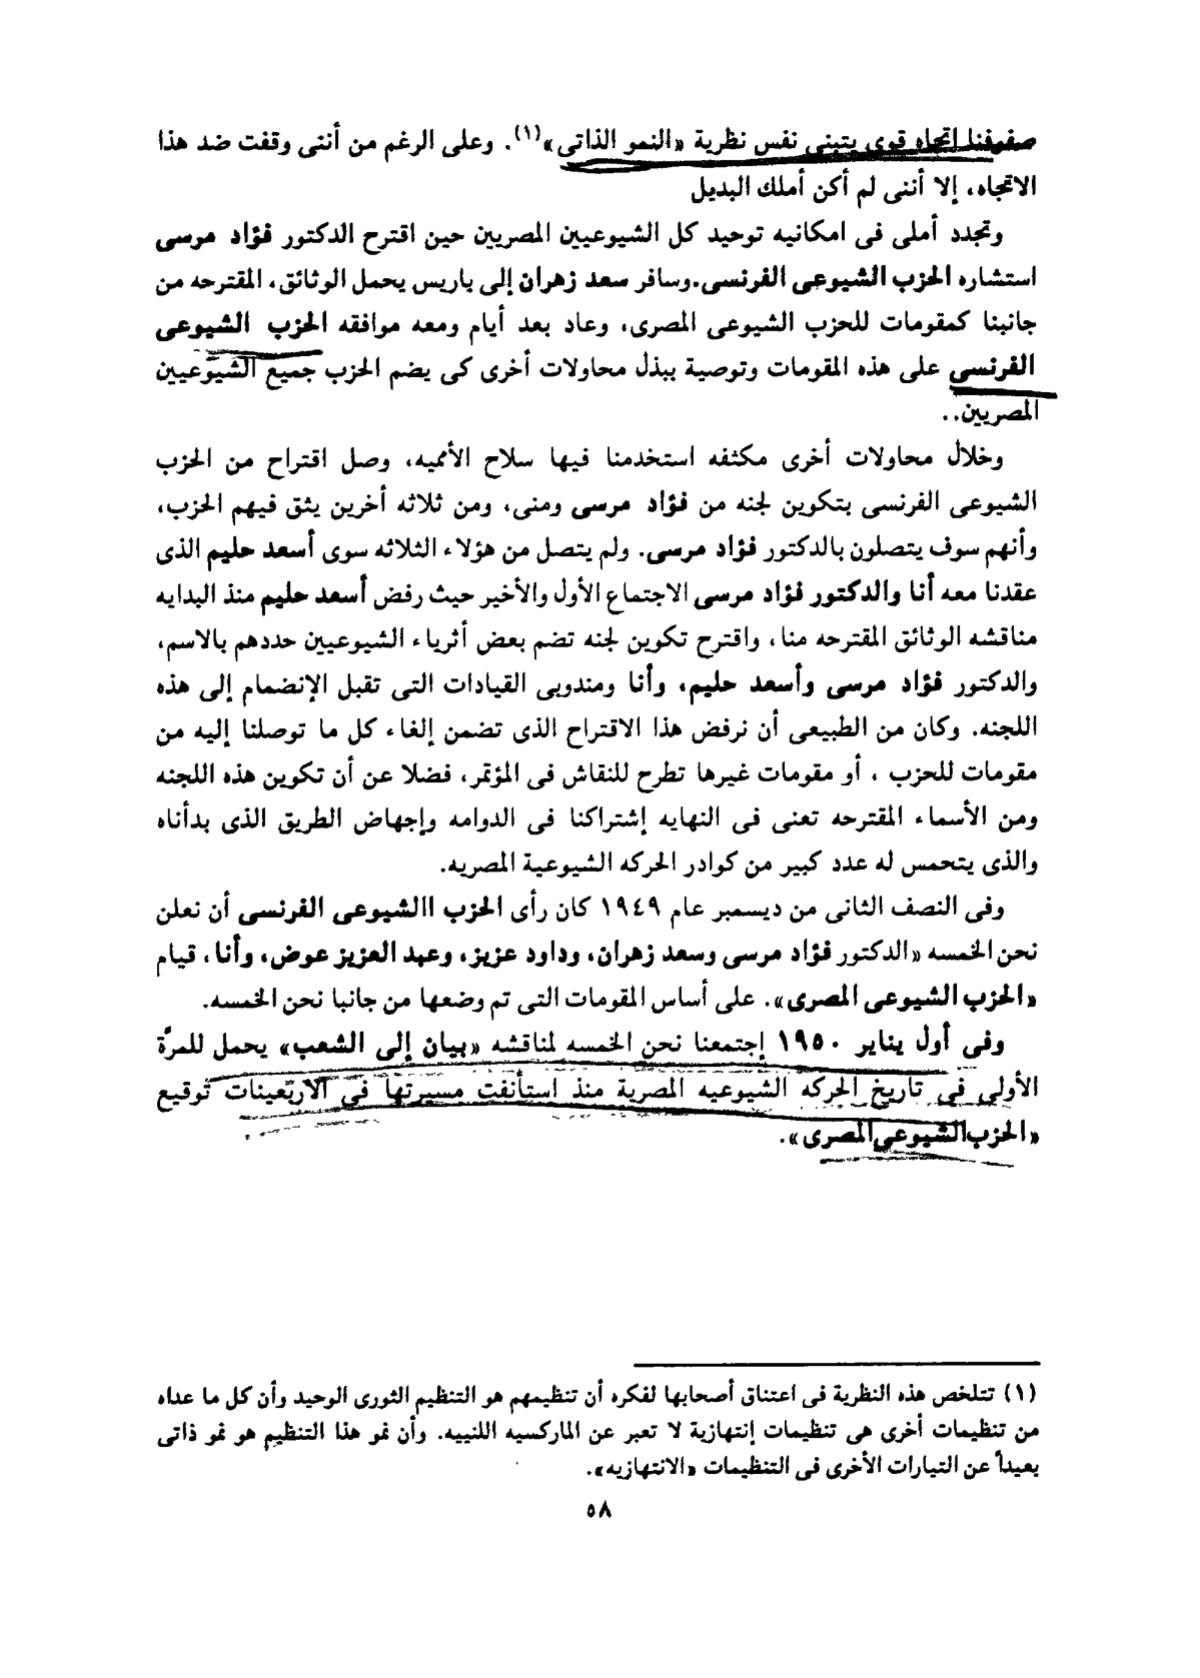 صفوفنا اتجاه قوى يتبنى نفس نظرية «النمو الذاتى»(١). وعلى الرغم من أننى وقفت ضد هذا
الاتجاه، إلا أننى لم أكن أملك البديل
وتجدد أملى فى امكانيه توحيد كل الشيوعيين المصريين حين اقترح الدكتور فؤاد مرسى
استشاره الحزب الشيوعى الفرنسى.وسافر سعد زهران إلى باريس يحمل الوثائق، المقترحه من
جانبنا كمقومات للحزب الشيوعى المصرى، وعاد بعد أيام ومعه موافقه الحزب الشيوعى
الفرنسى على هذه المقومات وتوصية ببذل محاولات أخرى كى يضم الحزب جميع الشيوعيين
المصريين..
وخلال محاولات أخرى مكثفه استخدمنا فيها سلاح الأمميه، وصل اقتراح من الحزب
الشيوعى الفرنسى بتكوين لجنه من فؤاد مرسى ومنى، ومن ثلاثه أخرين يثق فيهم الحزب،
وأنهم سوف يتصلون بالدكتور فؤاد مرسى. ولم يتصل من هؤلاء الثلاثه سوى أسعد حليم الذى
عقدنا معه أنا والدكتور فؤاد مرسى الاجتماع الأول والأخير حيث رفض أسعد حليم منذ البدايه
مناقشه الوثائق المقترحه منا، واقترح تكوين لجنه تضم بعض أثرياء الشيوعيين حددهم بالاسم،
والدكتور فؤاد مرسى وأسعد حليم، وأنا ومندوبى القيادات التى تقبل الإنضمام إلى هذه
اللجنه. وكان من الطبيعى أن نرفض هذا الاقتراح الذى تضمن إلغاء كل ما توصلنا إليه من
مقومات للحزب ، أو مقومات غيرها تطرح للنقاش فى المؤتمر، فضلا عن أن تكوين هذه اللجنه
ومن الأسماء المقترحه تعنى فى النهايه إشتراكنا فى الدوامه وإجهاض الطريق الذى بدأناه
والذى يتحمس له عدد كبير من كوادر الحركه الشيوعية المصريه.
وفى النصف الثانى من ديسمبر عام ١٩٤٩ كان رأى الحزب االشيوعى الفرنسى أن نعلن
نحن الخمسه «الدكتور فؤاد مرسى وسعد زهران، وداود عزيز، وعبد العزيز عوض، وأنا، قيام
«الحزب الشيوعى المصرى». على أساس المقومات التى تم وضعها من جانبا نحن الخمسه.
وفى أول يناير ١٩٥٠ إجتمعنا نحن الخمسه لمناقشه «بيان إلى الشعب» يحمل للمرَّة
الأولى فى تاريخ الحركه الشيوعيه المصرية منذ استأنفت مسيرتها فى الاربعينات توقيع
«الحزب الشيوعى المصرى».
(١) تتلخص هذه النظرية فى اعتناق أصحابها لفكره أن تنظيمهم هو التنظيم الثورى الوحيد وأن كل ما عداه
من تنظيمات أخرى هى تنظيمات إنتهازية لا تعبر عن الماركسيه اللنييه. وأن نمو هذا التنظيم هو نمو ذاتى
بعيداً عن التيارات الأخرى فى التنظيمات «الانتهازيه».
٥٨